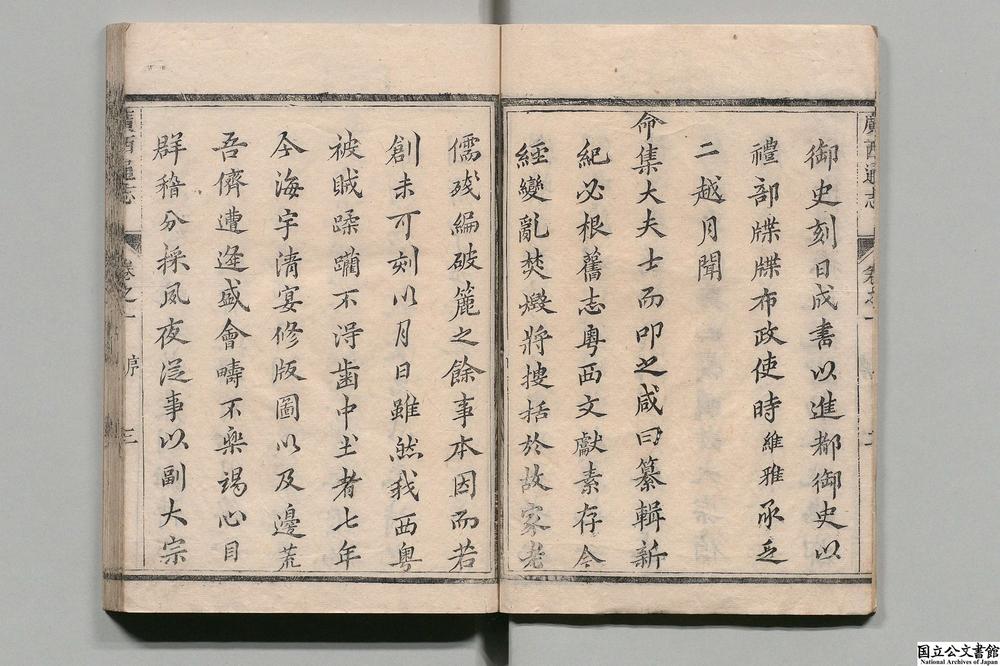 廣西通志
卷之一
二
御史刻日成書以進都御史以
禮部牒牒布政使時維雅承乏
二越月聞
命集大夫士而叩之咸曰纂輯新
紀必根舊志粤西文獻素存今
經變亂焚燬將搜括於故家老
儒殘編破簏之餘事本因而若
創未可刻以月日雖然我西粤
被賊蹂躪不淂齒中土者七年
今海宇清宴修版圖以及邊荒
吾儕遭逢盛會疇不樂竭心目
群稽分採夙夜從事以副大宗
廣西通志
卷之一
序
三
国立公文書館
National Archives of Japan